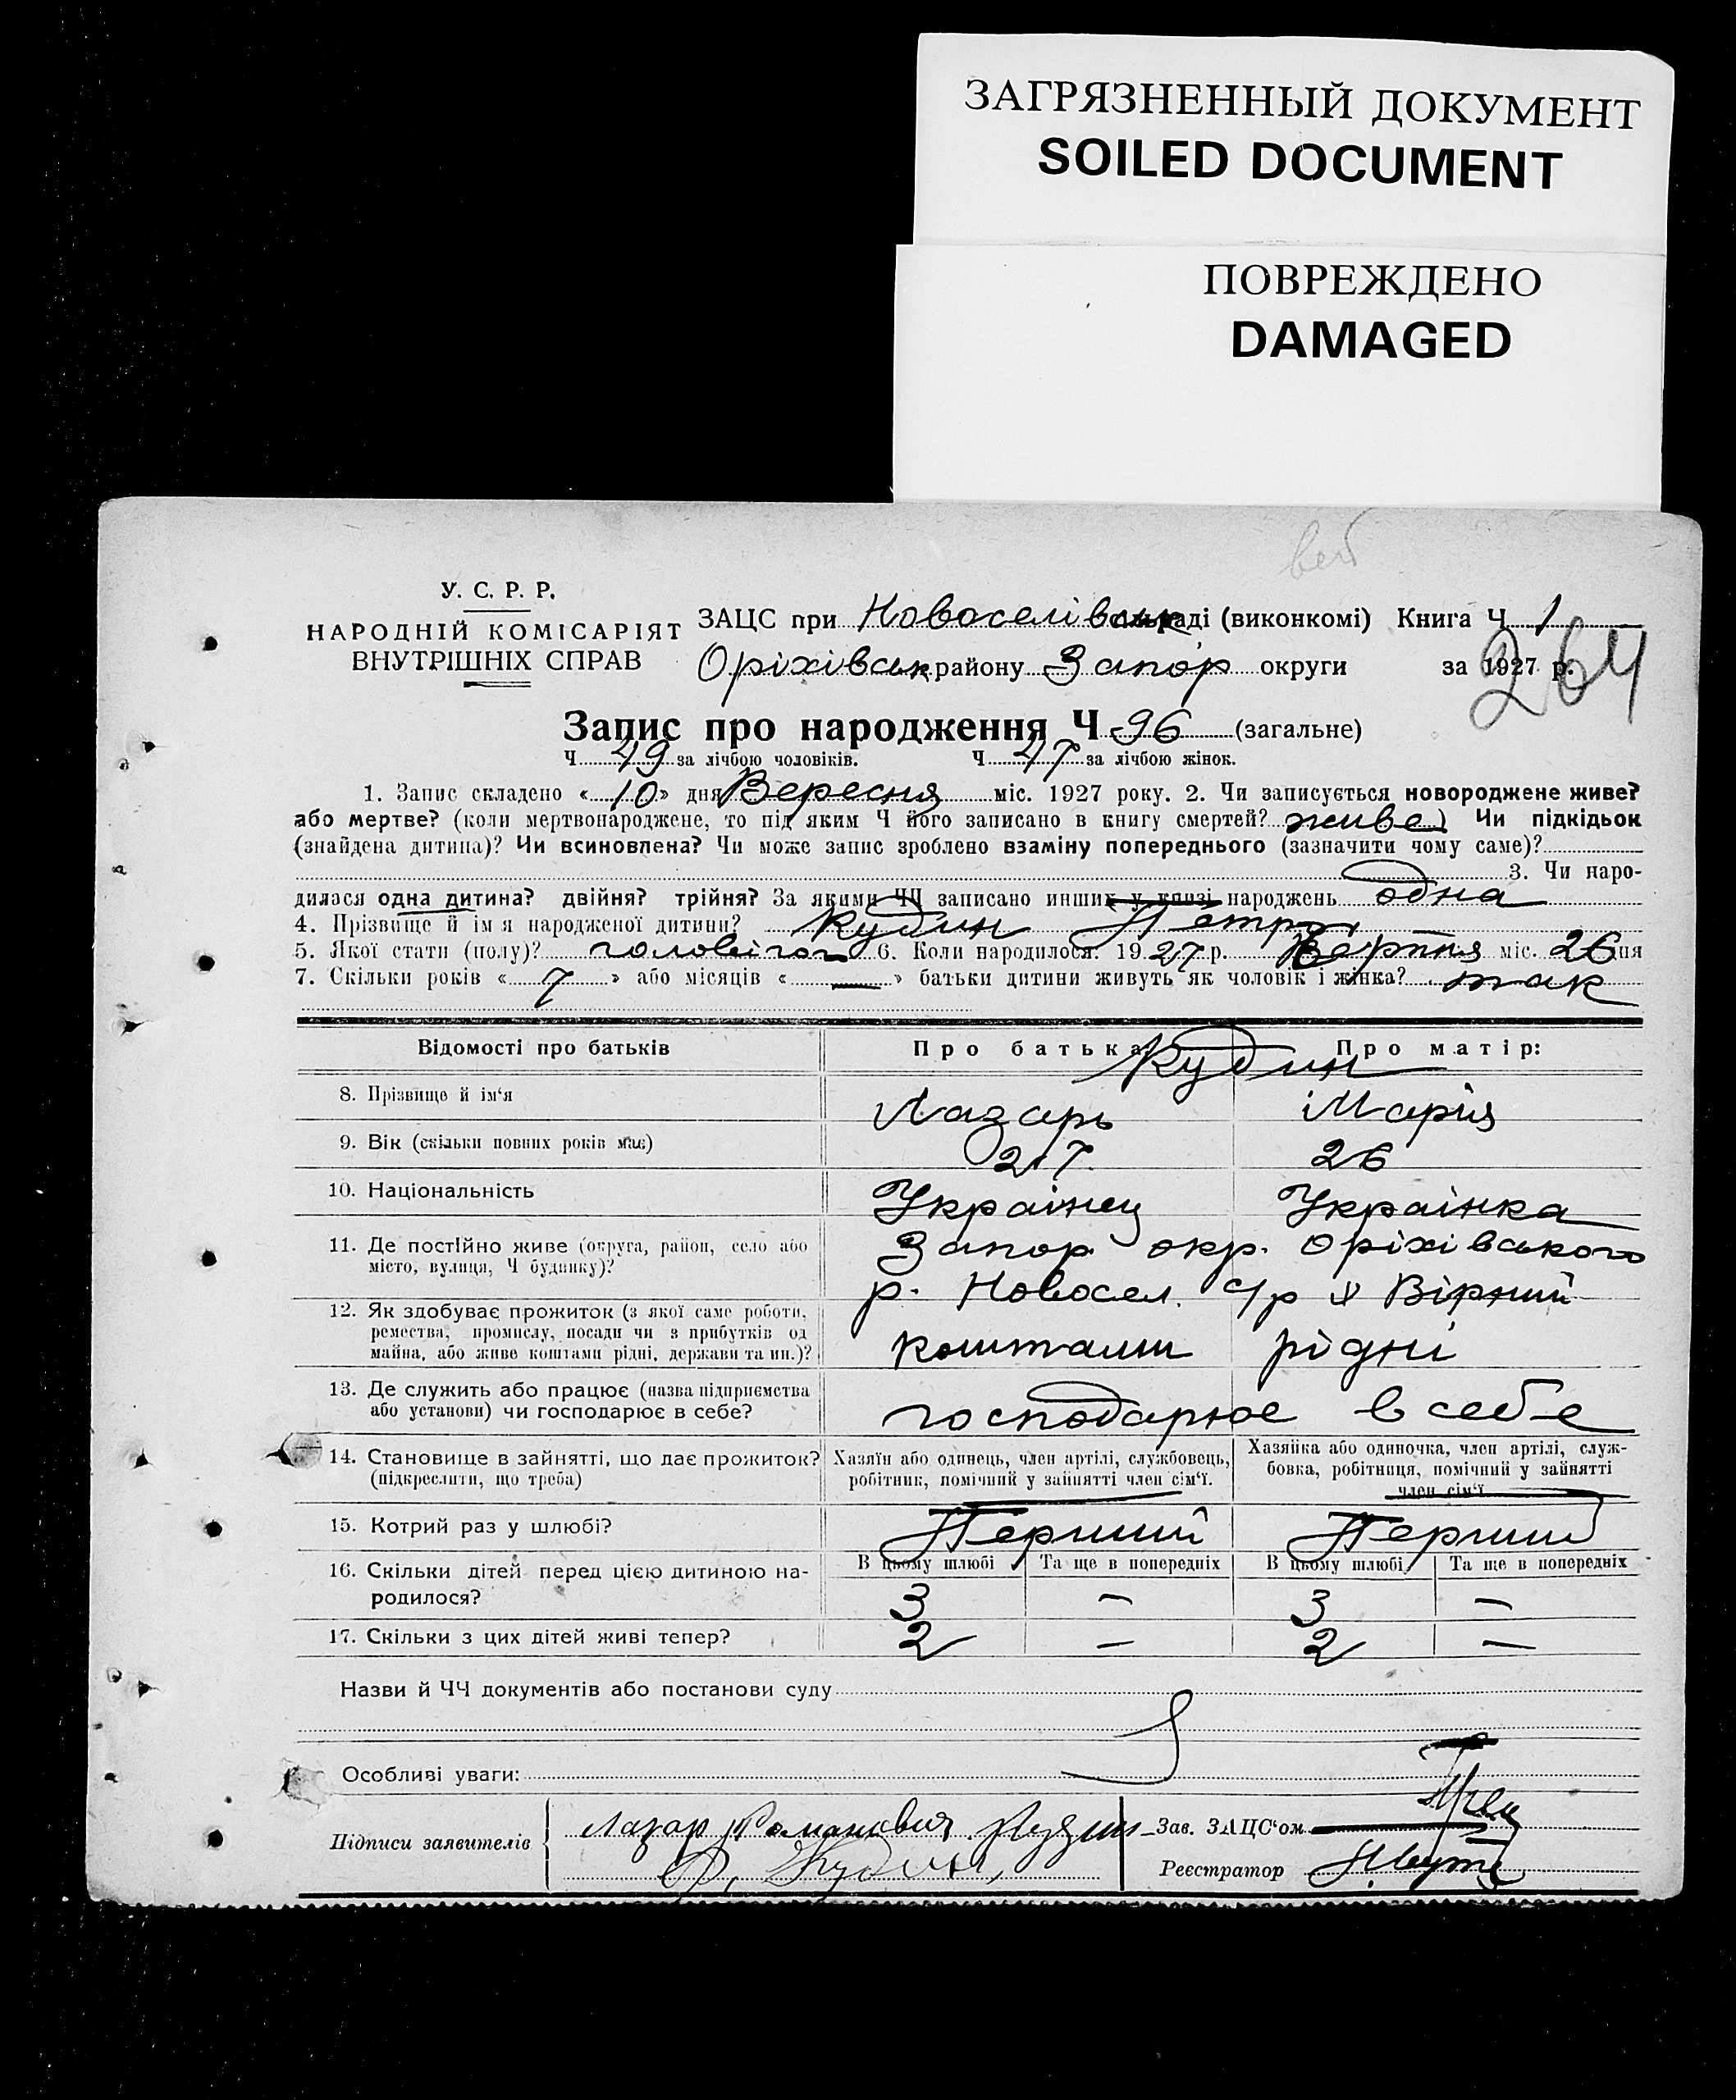 ЗАГРЯЗНЕННЫЙ ДОКУМЕНТ
SOILED DOCUMENT
ПОВРЕЖДЕНО
DAMAGED
У. С. Р. Р.
НАРОДНІЙ КОМІСАРІЯТ
ВНУТРІШНІХ СПРАВ
ЗАЦС при Новоселівськ раді (виконкомі) Книга Ч 1
Оріхівськ району Запор округи за 1927 р.
264
Запис про народження Ч 96 (загальне)
Ч 49 за лічбою чоловіків. Ч 47 за лічбою жінок.
1. Запис складено « 10 » дня Вересня міс. 1927 року. 2. Чи записується новороджене живе?
або мертве? (коли мертвонароджене, то під яким Ч його записано в книгу смертей? живе) Чи підкідьок
(знайдена дитина)? Чи всиновлена? Чи може запис зроблено взаміну попереднього (зазначити чому саме)?
3. Чи наро-
дилася одна дитина? двійня? трійня? За якими ЧЧ записано инших у книзі народжень одна
4. Прізвище й ім'я народженої дитини? Кудин Петро
5. Якої стати (полу)? 6. Коли народилося: 1927 р. Серпня міс. 26 дня
7. Скільки років « 7 » або місяців « — » батьки дитини живуть як чоловік і жінка? так
Відомості про батьків Про батька Про матір:
Кудин
8. Прізвище й ім'я Лазарь Марія
9. Вік (скільки повних років має) 27 26
10. Національність Українец Українка
11. Де постійно живе (округа, район, село або Запор окр. Оріхівського
місто, вулиця, Ч будинку)? р. Новосел. с/р х Вірний
12. Як здобуває прожиток (з якої саме роботи,
ремества, промислу, посади чи з прибутків од
майна, або живе коштами рідні, держави та ин.)? коштами рідні
13. Де служить або працює (назва підприємства
або установи) чи господарює в себе? господарює в себе
14. Становище в зайнятті, що дає прожиток? Хазяїн або одинець, член артілі, службовець, Хазяйка або одиночка, член артілі, служ-
(підкреслити, що треба) робітник, помічний у зайнятті член сім'ї. бовка, робітниця, помічний у зайнятті
член сім'ї
15. Котрий раз у шлюбі? Перший Перший
16. Скільки дітей перед цією дитиною на- В цьому шлюбі Та ще в попередніх В цьому шлюбі Та ще в попередніх
родилося? 3 — 3 —
17. Скільки з цих дітей живі тепер? 2 — 2 —
Назви й ЧЧ документів або постанови суду
Особливі уваги:
Підписи заявителів Лазар Романович Кудин Зав. ЗАЦС'ом
Кудин Реєстратор